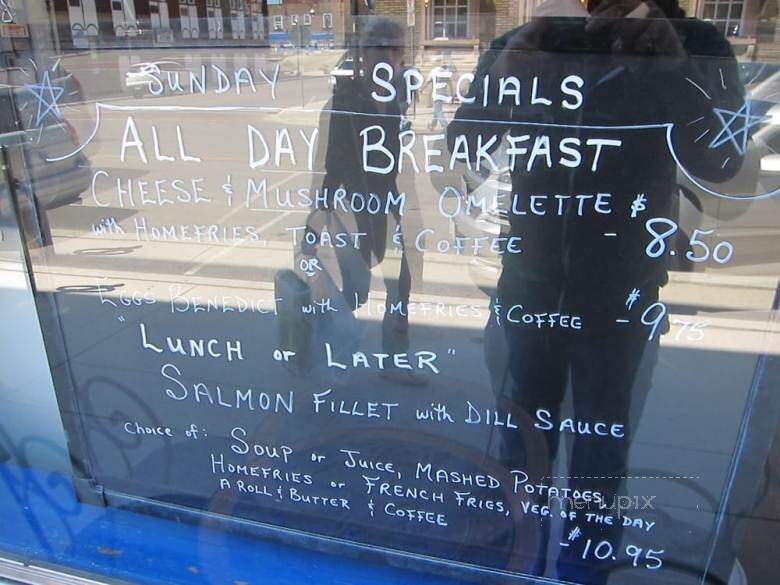 SUNDAY - SPECIALS
ALL DAY BREAKFAST
CHEESE & MUSHROOM OMELETTE $
with HOMEFRIES, TOAST & COFFEE - 8.50
OR
EGGS BENEDICT with HOMEFRIES & COFFEE - $9.75
"LUNCH or LATER"
SALMON FILLET with DILL SAUCE
CHOICE of: SOUP or JUICE, MASHED POTATOES,
HOMEFRIES or FRENCH FRIES, VEG. OF THE DAY
A ROLL & BUTTER & COFFEE
- $10.95
menupix